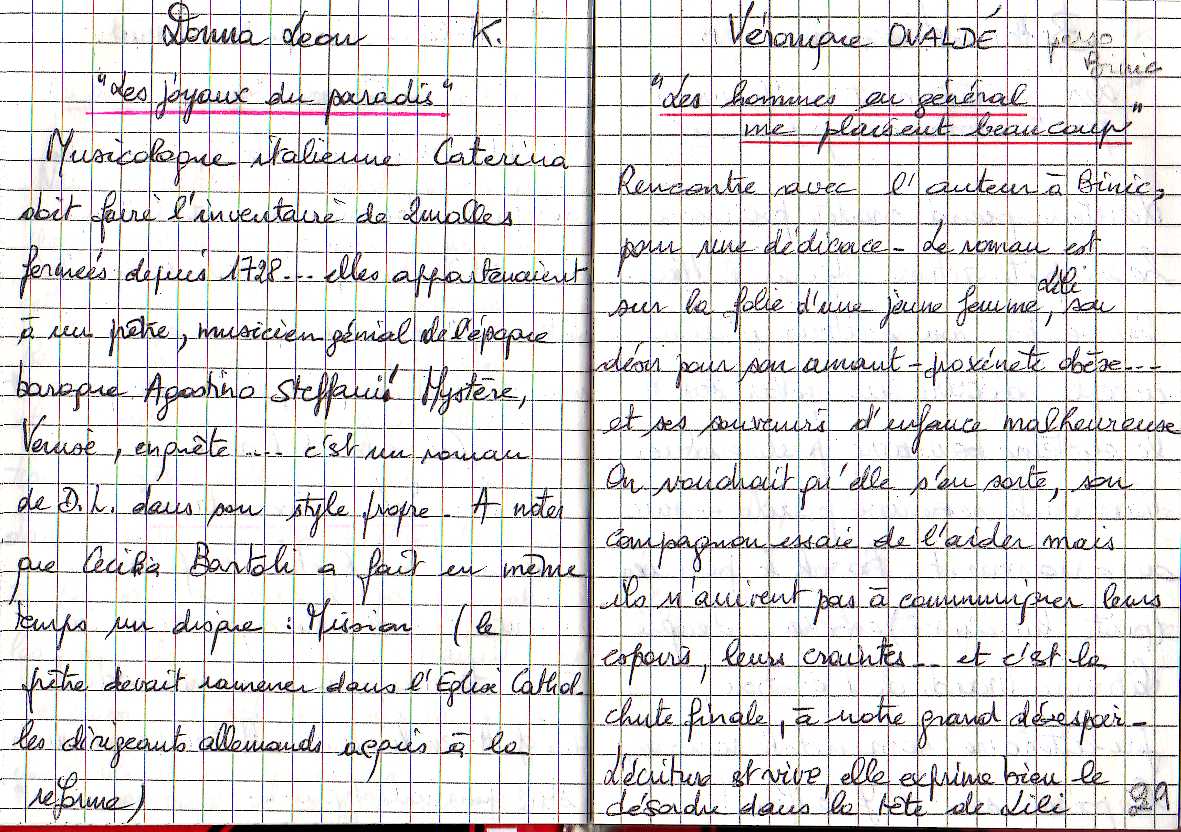 Donna Leon K.
"Les joyaux du paradis"
Musicologue italienne Caterina
doit faire l'inventaire de 2 malles
fermées depuis 1728... elles appartenaient
à un prêtre, musicien génial de l'époque
baroque Agostino Steffani! Mystère,
Venise, enquête .... c'est un roman
de D.L. dans son style propre. A noter
que Cecilia Bartoli a fait en même
temps un disque : Mission (le
prêtre devait ramener dans l'Eglise Cathol.
les dirigeants allemands acquis à la
réforme)
Véronique OVALDÉ perso
Binic
"Les hommes en général
me plaisent beaucoup"
Rencontre avec l'auteur à Binic,
pour une dédicace - Le roman est
sur la folie d'une jeune femme, Lili son
désir pour son amant - proxénète obèse...
et ses souvenirs d'enfance malheureuse
On voudrait qu'elle s'en sorte, son
compagnon essaie de l'aider mais
ils n'arrivent pas à communiquer leurs
espoirs, leurs craintes... et c'est la
chute finale, à notre grand désespoir -
L'écriture est vive, elle exprime bien le
désordre dans la tête de Lili
29